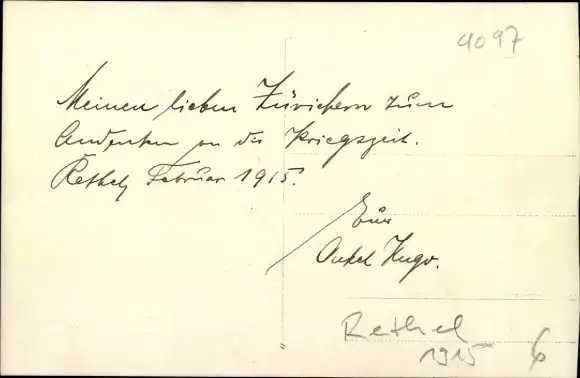 4097
Meinen lieben Zürichern zum
Andenken an die Kriegszeit.
Rethel, Februar 1915.
Eur
Onkel Hugo.
Rethel
1915 6